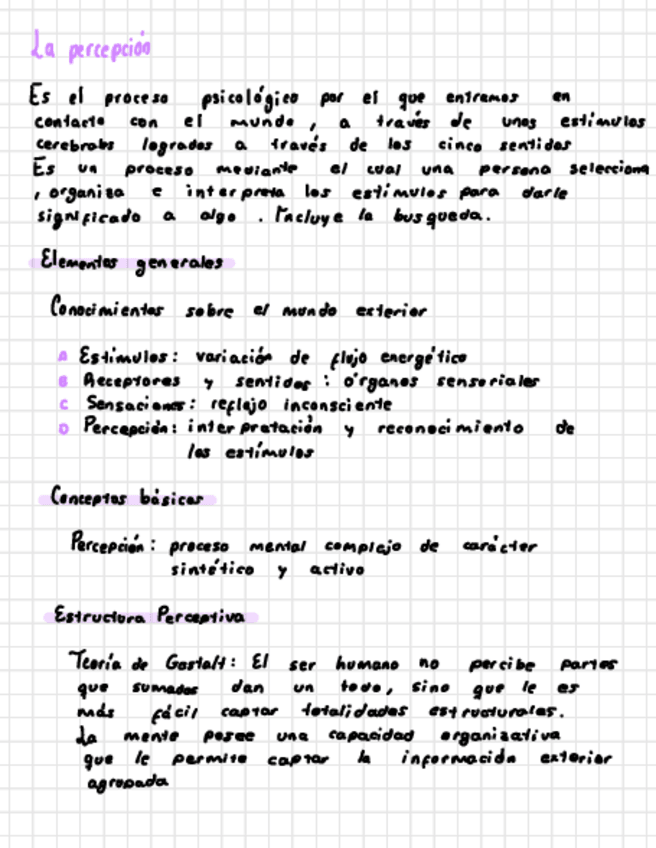 La percepción
Es el proceso psicológico por el que entramos en
contacto con el mundo, a través de unos estímulos
cerebrales logrados a través de los cinco sentidos
Es un proceso mediante el cual una persona selecciona
, organiza e interpreta los estímulos para darle
significado a algo. Incluye la busqueda.
Elementos generales
Conocimientos sobre el mundo exterior
A Estímulos: variación de flujo energético
B Receptores y sentidos: órganos sensoriales
C Sensaciones: reflejo inconsciente
D Percepción: interpretación y reconocimiento de
los estímulos
Conceptos básicos
Percepción: proceso mental complejo de carácter
sintético y activo
Estructura Perceptiva
Teoría de Gastalt: El ser humano no percibe partes
que sumadas dan un todo, sino que le es
más fácil captar totalidades estructurales.
La mente posee una capacidad organizativa
que le permite captar la información exterior
agrupada